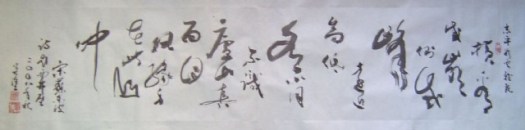 横看
成岭侧成
峰
远近
高低
各不同
不识
庐山真
面目
只缘身
在此山
中
宋苏东坡
二〇〇八年